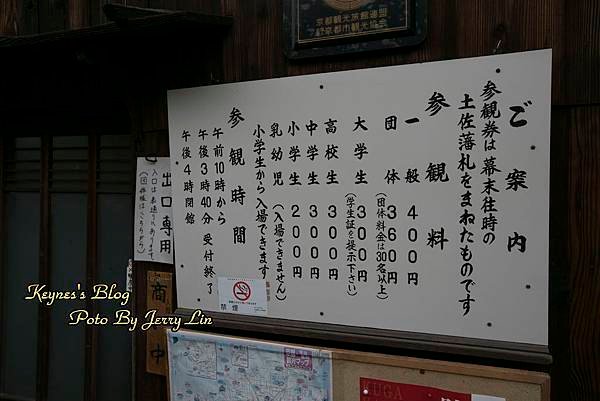 ご案内
参観券は幕末往時の
土佐藩札をまねたものです
参観料
一般 400円
団体 360円
(団体料金は30名以上)
大学生 300円
(学生証を提示下さい)
高校生 300円
中学生 300円
小学生 200円
乳幼児 (入場できません)
小学生から入場できます
参観時間
午前10時から
午後3時40分 受付終了
午後4時閉館
禁煙
出口専用
入口は表通りであります
商
中
京都市観光協会
KUGA
Keynes's Blog
Poto By Jerry Lin